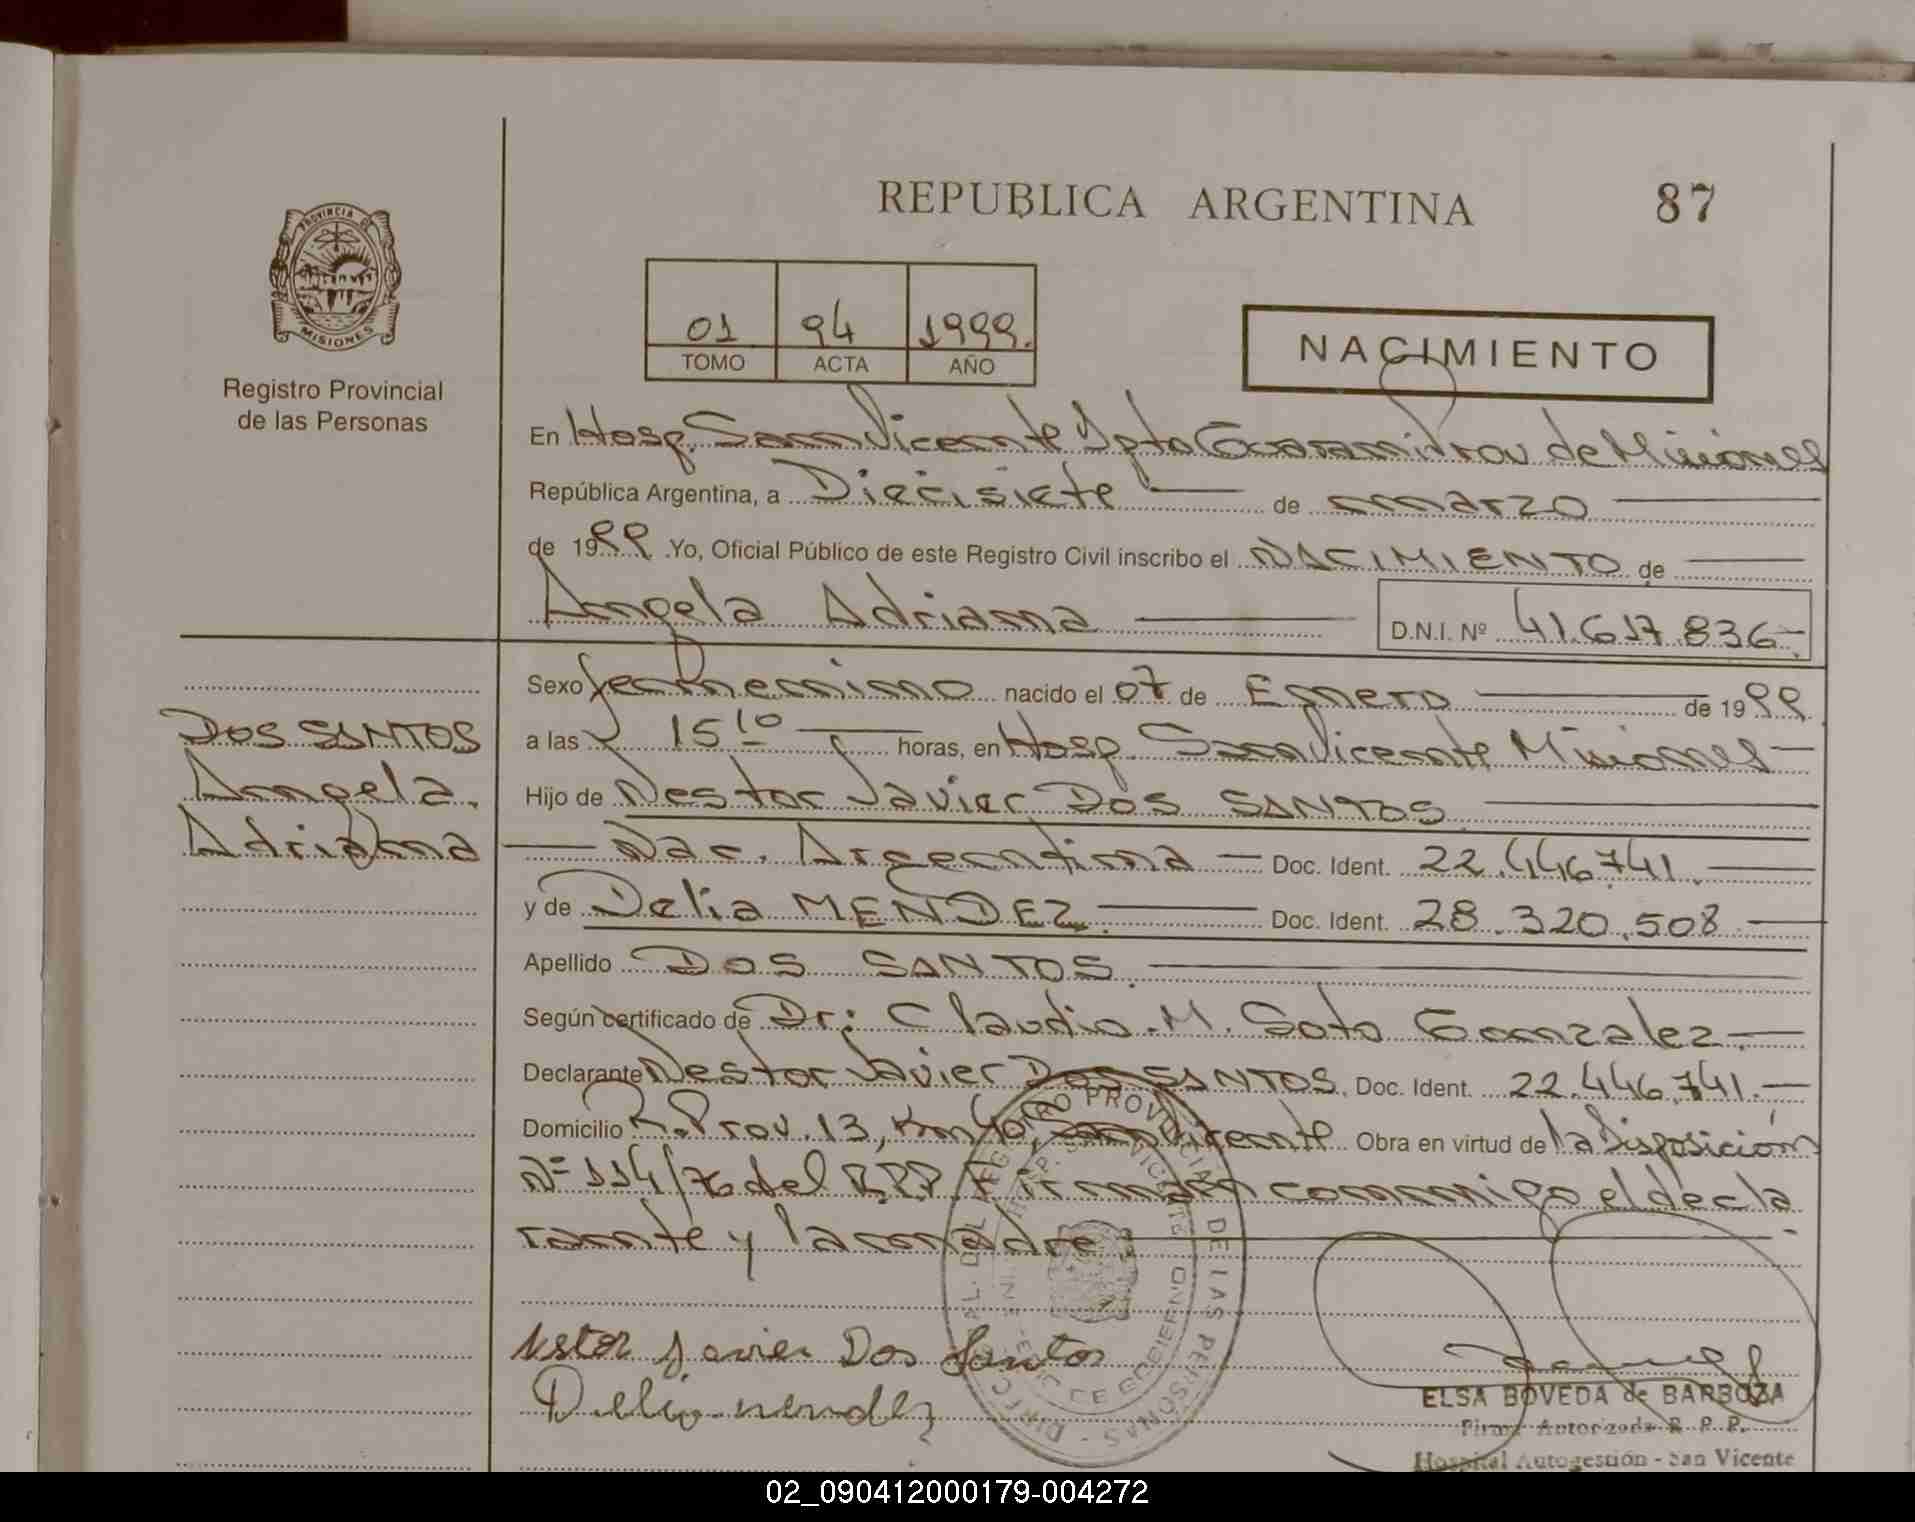 REPUBLICA ARGENTINA
87
PROVINCIA DE
MISIONES
Registro Provincial
de las Personas
01 94 1999.
TOMO ACTA AÑO
NACIMIENTO
En Hosp. San Vicente Dpto Guarani Prov de Misiones
República Argentina, a Diecisiete de marzo
de 1999 Yo, Oficial Público de este Registro Civil inscribo el NACIMIENTO de
Angela Adriana
D.N.I. Nº 41.617.836-
Sexo femenino nacido el 07 de Enero de 1999
DOS SANTOS
Angela
Adriana
a las 15 10 horas, en Hosp. San Vicente Misiones
Hijo de Nestor Javier DOS SANTOS
Nac. Argentina Doc. Ident. 22.446.741.
y de Delia MENDEZ Doc. Ident. 28.320.508
Apellido DOS SANTOS
Según certificado de Dr: Claudio M. Soto Gonzalez
Declarante Nestor Javier DOS SANTOS, Doc. Ident. 22.446.741.
Domicilio R. Prov. 13, Km 40, San Vicente Obra en virtud de la Disposición
Nº 114/76 del R.P.P. Firman conmigo el decla
rante y la madre
Nstor Javier Dos Santos
Delia mendez
ELSA BOVEDA de BARBOZA
Firma Autorizada R. P. P.
Hospital Autogestión - San Vicente
02_090412000179-004272